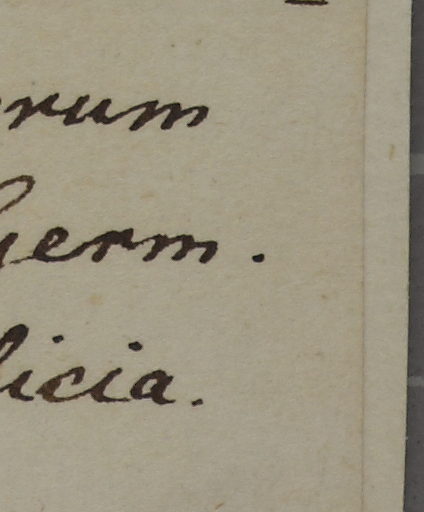 rum
Germ.
licia.